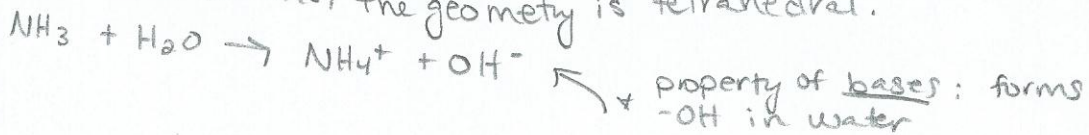 the geometry is tetrahedral.
NH3 + H2O → NH4+ + OH-
* property of bases: forms
-OH in water